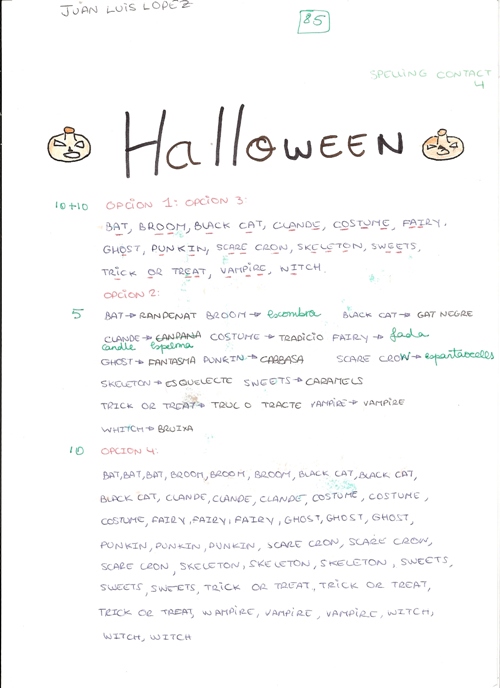 JUAN LUIS LOPEZ
85
SPELLING CONTACT
4
HalloWEEN
10+10 OPCION 1: OPCION 3:
BAT, BROOM, BLACK CAT, CLANDE, COSTUME, FAIRY,
GHOST, PUNKIN, SCARE CROW, SKELETON, SWEETS,
TRICK OR TREAT, VAMPIRE, WITCH.
OPCION 2:
5 BAT→ RANDENAT BROOM→ escombra BLACK CAT→ GAT NEGRE
CLANDE→ COSTUME→ TRADICIO FAIRY→ fada
candle espelma
GHOST→ FANTASMA PUNKIN→ CARBASA SCARE CROW→ espantaocells
SKELETON→ ESQUELECTE SWEETS→ CARAMELS
TRICK OR TREAT→ TRUC O TRACTE VAMPIRE→ VAMPIRE
WHITCH→ BRUIXA
10 OPCION 4:
BAT, BAT, BAT, BROOM, BROOM, BROOM, BLACK CAT, BLACK CAT,
BLACK CAT, CLANDE, CLANDE, CLANDE, COSTUME, COSTUME,
COSTUME, FAIRY, FAIRY, FAIRY, GHOST, GHOST, GHOST,
PUNKIN, PUNKIN, PUNKIN, SCARE CROW, SCARE CROW,
SCARE CROW, SKELETON, SKELETON, SKELETON, SWEETS,
SWEETS, SWEETS, TRICK OR TREAT, TRICK OR TREAT,
TRICK OR TREAT, WAMPIRE, VAMPIRE, VAMPIRE, WITCH,
WITCH, WITCH